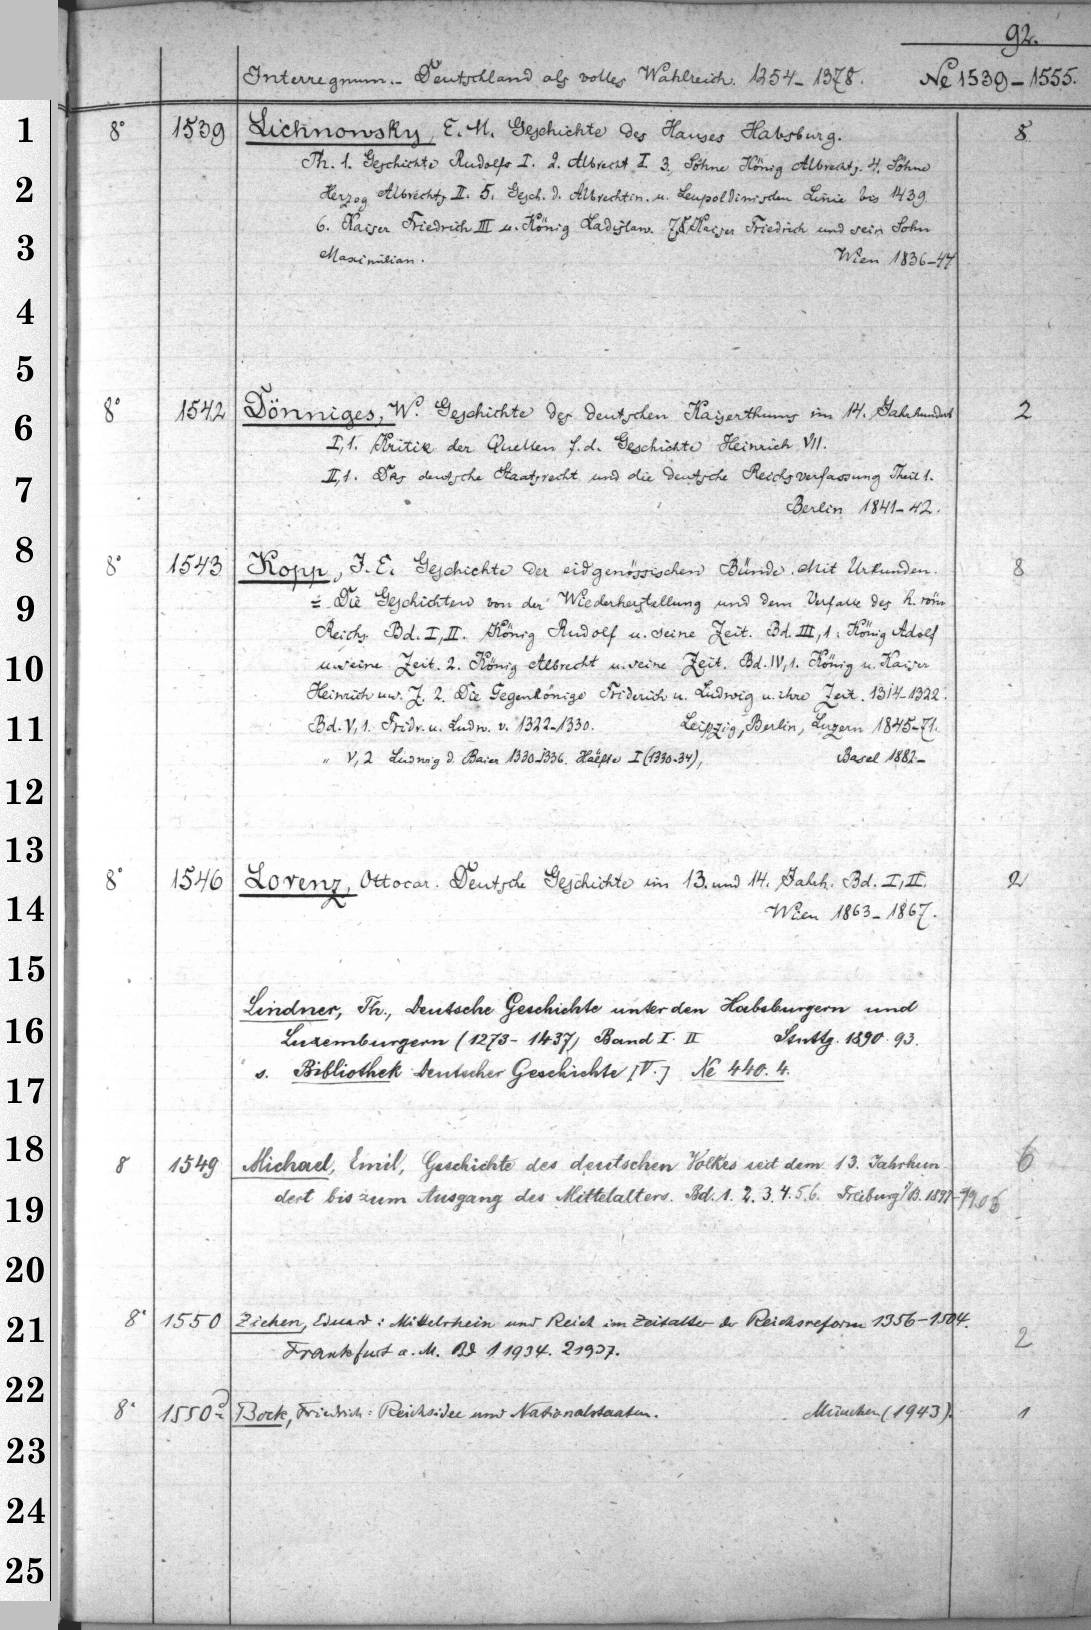 92.
Interregnum. - Deutschland als volles Wahlreich. 1254-1378. Ne 1539-1555.
1 8° 1539 Lichnowsky, E. M. Geschichte des Hauses Habsburg. 8
Th. 1. Geschichte Rudolfs I. 2. Albrecht I. 3. Söhne König Albrechts. 4. Söhne
2 Herzog Albrechts II. 5. Gesch. d. Albrechtin. u. Leopoldinischen Linie bis 1439
6. Kaiser Friedrich III u. König Ladislaw. 7.8. Kaiser Friedrich und sein Sohn
3 Maximilian. Wien 1836-44
4
5
8° 1542 Dönniges, W. Geschichte des deutschen Kaiserthums im 14. Jahrhundert 2
6 I,1. Kritik der Quellen f. d. Geschichte Heinrich VII.
7 II,1. Das deutsche Staatsrecht und die deutsche Reichsverfassung Theil 1.
Berlin 1841-42.
8 8° 1543 Kopp, J. E. Geschichte der eidgenössischen Bünde. Mit Urkunden. 8
9 = Die Geschichten von der Wiederherstellung und dem Verfalle des h. röm
Reichs. Bd. I, II. König Rudolf u. seine Zeit. Bd. III,1. König Adolf
10 u. seine Zeit. 2. König Albrecht u. seine Zeit. Bd. IV,1. König u. Kaiser
Heinrich u. s. Z. 2. Die Gegenkönige Friderich u. Ludwig u. ihre Zeit. 1314-1322.
11 Bd. V,1. Fridr. u. Ludw. v. 1322-1330. Leipzig, Berlin, Luzern 1845-71.
" V,2 Ludwig d. Baier 1330-1336. Hälfte I (1330-34), Basel 1882-
12
13
8° 1546 Lorenz, Ottocar. Deutsche Geschichte im 13. und 14. Jahrh. Bd. I, II. 2
14 Wien 1863-1867.
15
Lindner, Th., Deutsche Geschichte unter den Habsburgern und
16 Luxemburgern (1273-1437) Band I. II Stuttg. 1890. 93.
17 s. Bibliothek Deutscher Geschichte [V.] Ne 440. 4.
18 8 1549 Michael, Emil, Geschichte des deutschen Volkes seit dem 13. Jahrhun- 6
19 dert bis zum Ausgang des Mittelalters. Bd. 1. 2. 3. 4. 5. 6. Freiburg i/B. 1897-
20
21 8° 1550 Ziehen, Eduard: Mittelrhein und Reich im Zeitalter der Reichsreform 1356-1504. 2
Frankfurt a. M. Bd 1 1934. 2 1937.
22 8° 1550a Bock, Friedrich: Reichsidee und Nationalstaaten. München (1943). 1
23
24
25